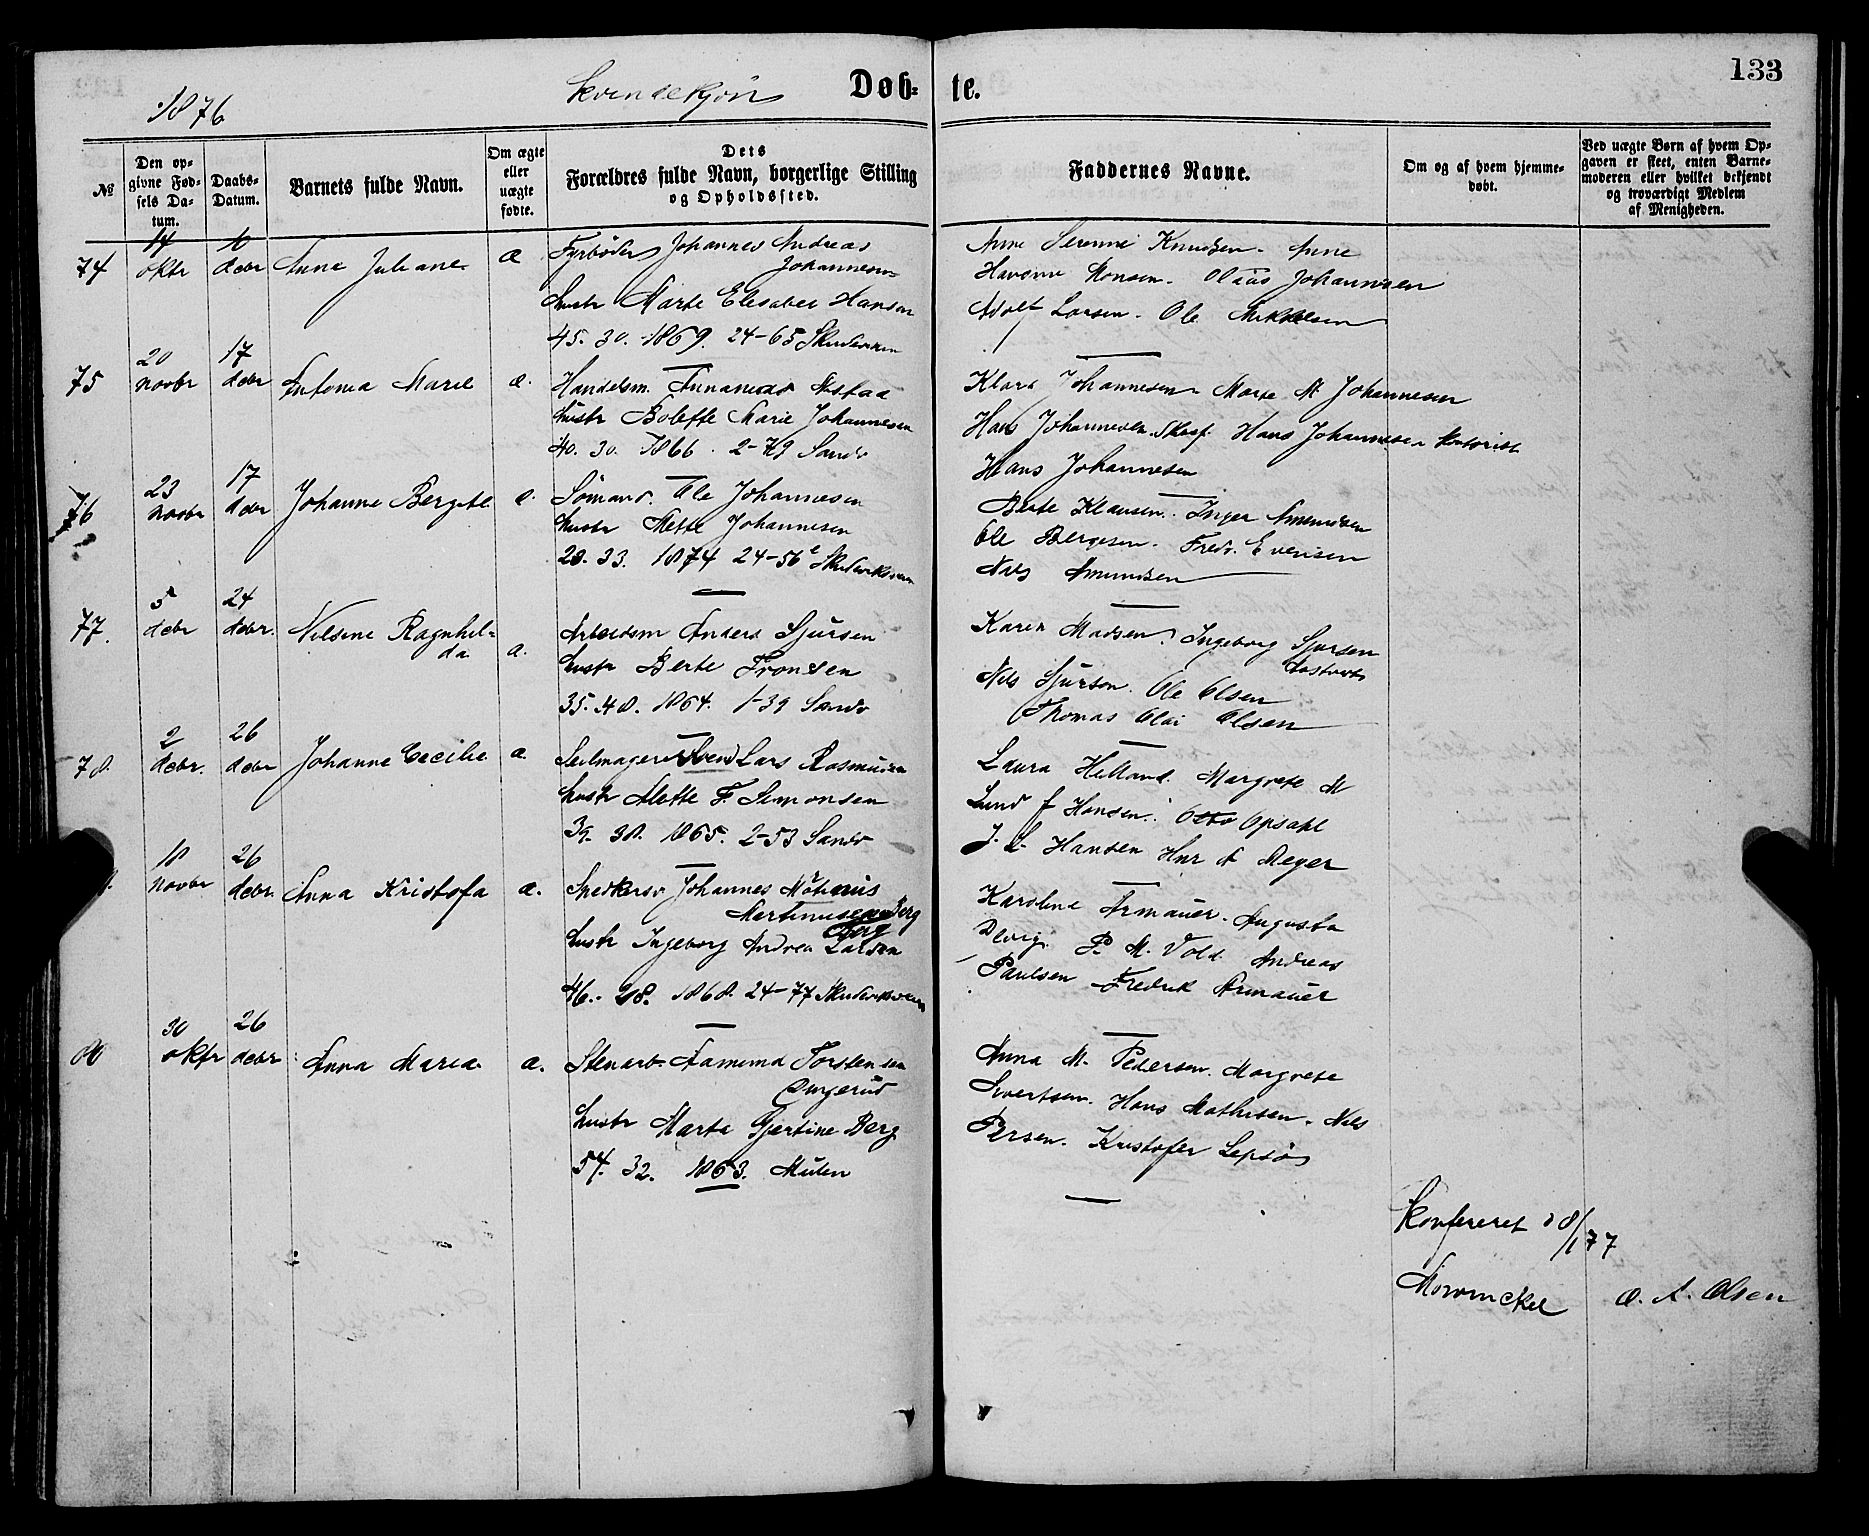 133
1876 Kvindekjøn Døb- te.
№
Den op-
givne Fød-
sels Da-
tum.
Daabs-
Datum.
Barnets fulde Navn.
Om ægte
eller
uægte
fødte.
Dets
Forældres fulde Navn, borgerlige Stilling
og Opholdssted.
Faddernes Navne.
Om og af hvem hjemme-
døbt.
Ved uægte Børn af hvem Op-
gaven er skeet, enten Barne-
moderen eller hvilket bekjendt
og troværdigt Medlem
af Menigheden.
74
14
oktr
10
debr
Anne Juliane
æ
Fyrbøder Johannes Andreas
Johannesen
hustr Marte Elisabet Hansen
45. 30. 1869. 24-65 Skuteviken
Anne Severine Knudsen. Anne
Monsen. Olaus Johannesen
Adolf Larsen. Ole Mikkelsen
75
20
novbr
17
debr
Antonia Marie
æ.
Handelsm.
hustr Bolette Marie Johannesen
40. 30. 1866. 2-79 Sandv
Klara Johannesen Marte M Johannesen
Hans Johannesen. Skof. Hans Johannesen kontorist
Hans Johannesen
76
23
novbr
17
debr
Johanne Bergite
æ.
Sömand. Ole Johannesen
hustr Mette Johannesen
28. 33. 1874 24-56 Skuteviksveien
Berte Klausen. Inger Amundsen
Ole Bergesen. Fredr. Evensen
Nils Amundsen
77.
5
debr
24
debr.
Nilsine Ragnhil-
da
æ.
Arbeidsm Anders Sjursen
hustr Berte Tronsen
35. 40. 1864. 1-39 Sandv
Karen Madsen. Ingeborg Sjursen
Nils Sjursen. Ole Olsen
Thomas Olai Olsen
78.
2
debr.
26
debr
Johanne Cecilie
æ.
Seilmagersvend Lars Rasmusen
hustr Mette F. Simonsen
39. 38. 1865. 2-53 Sandv
Laura Helland. Margrete M
Lund f Hansen. Otto Opsahl
J. L. Hansen Hnr A Meyer
18
novbr
26
debr.
Anna Kristofa
æ.
Snedkersv Johannes
Martinusen Berg
hustr Ingeborg Andrea Larsen
46. 28. 1868. 24-77 Skuteviksveien
Karoline Armauer. Augusta
P. M. Vold. Andreas
Paulsen Fredrik Armauer
80
30
oktr
26
debr
Anna Maria
æ.
Stenarb. Torstensen
hustr Marta Gjertine Berg
54. 32. 1863. Mulen
Anna M. Pedersen. Margrete
Sivertsen. Hans Mathisen. Nils
Persen. Kristofer Lepsö
Konfereret 8/1 77
Mowinckel O. A. Olsen